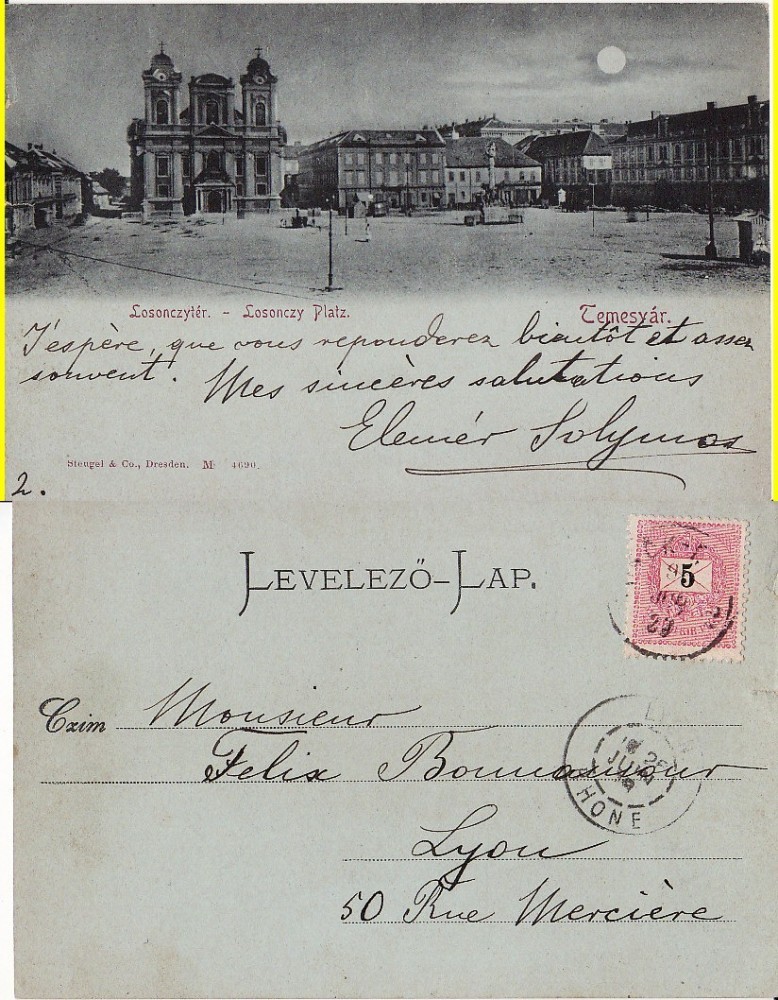 Losonczytér. - Losonczy Platz.
Temesvár.
J'espère, que vous reponderez bientôt et assez
souvent. Mes sincères salutations
Elemér Solymos
Stengel & Co., Dresden. M 4690.
2.
LEVELEZŐ-LAP.
5
29
Czim Monsieur
Felix Bonnansour
Lyon
50 Rue Mercière
JUIN
RHONE